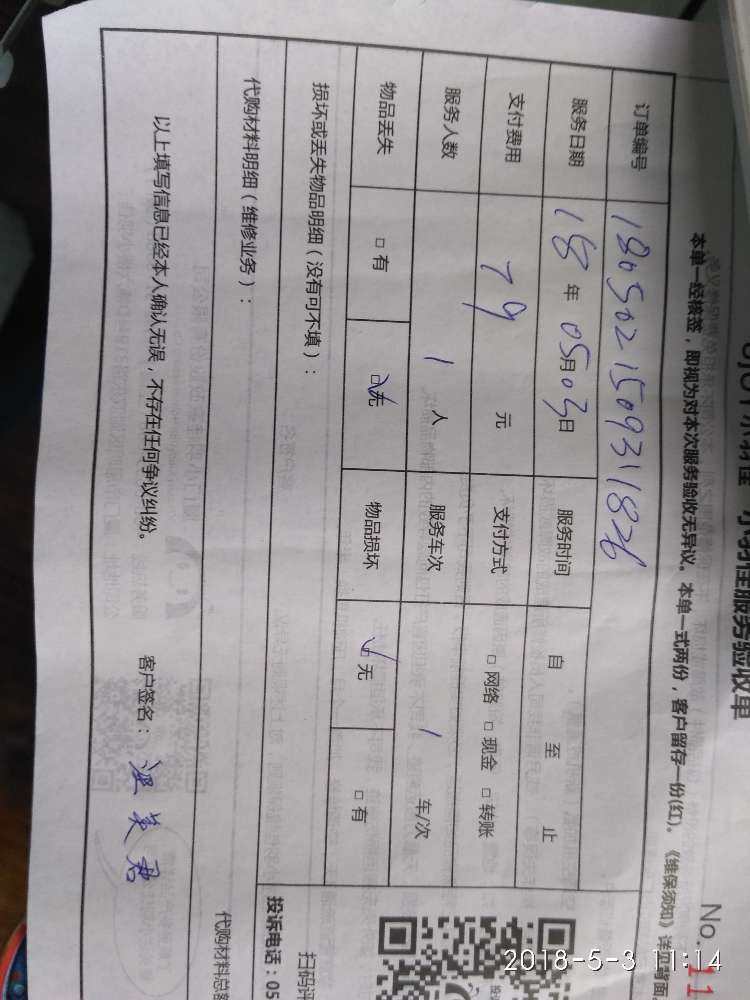 服务验收单
No. 11
本单一经核签，即视为对本次服务验收无异议。本单一式两份，客户留存一份(红)。《维保须知》详见背面
订单编号 1805021509311826
服务日期 18 年 05 月 03 日 服务时间 自 至 止
支付费用 79 元 支付方式 □ 网络 □ 现金 □ 转账
服务人数 1 人 服务车次 1 车/次
物品丢失 □ 有 □ 无 物品损坏 □ 无 □ 有
损坏或丢失物品明细（没有可不填）：
扫码评
投诉电话：05
代购材料明细（维修业务）：
代购材料总
以上填写信息已经本人确认无误，不存在任何争议纠纷。 客户签名：
2018-5-3 11:14